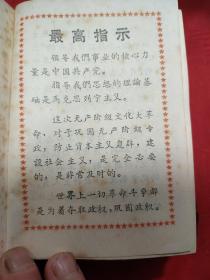 最高指示
领导我們事业的核心力
量是中国共产党。
指导我們思想的理論基
础是馬克思列宁主义。
这次无产阶级文化大革
命，对于巩固无产阶级专
政，防止資本主义复辟，建
設社会主义，是完全必要
的，是非常及时的。
世界上一切革命斗争都
是为着夺取政权，巩固政权。